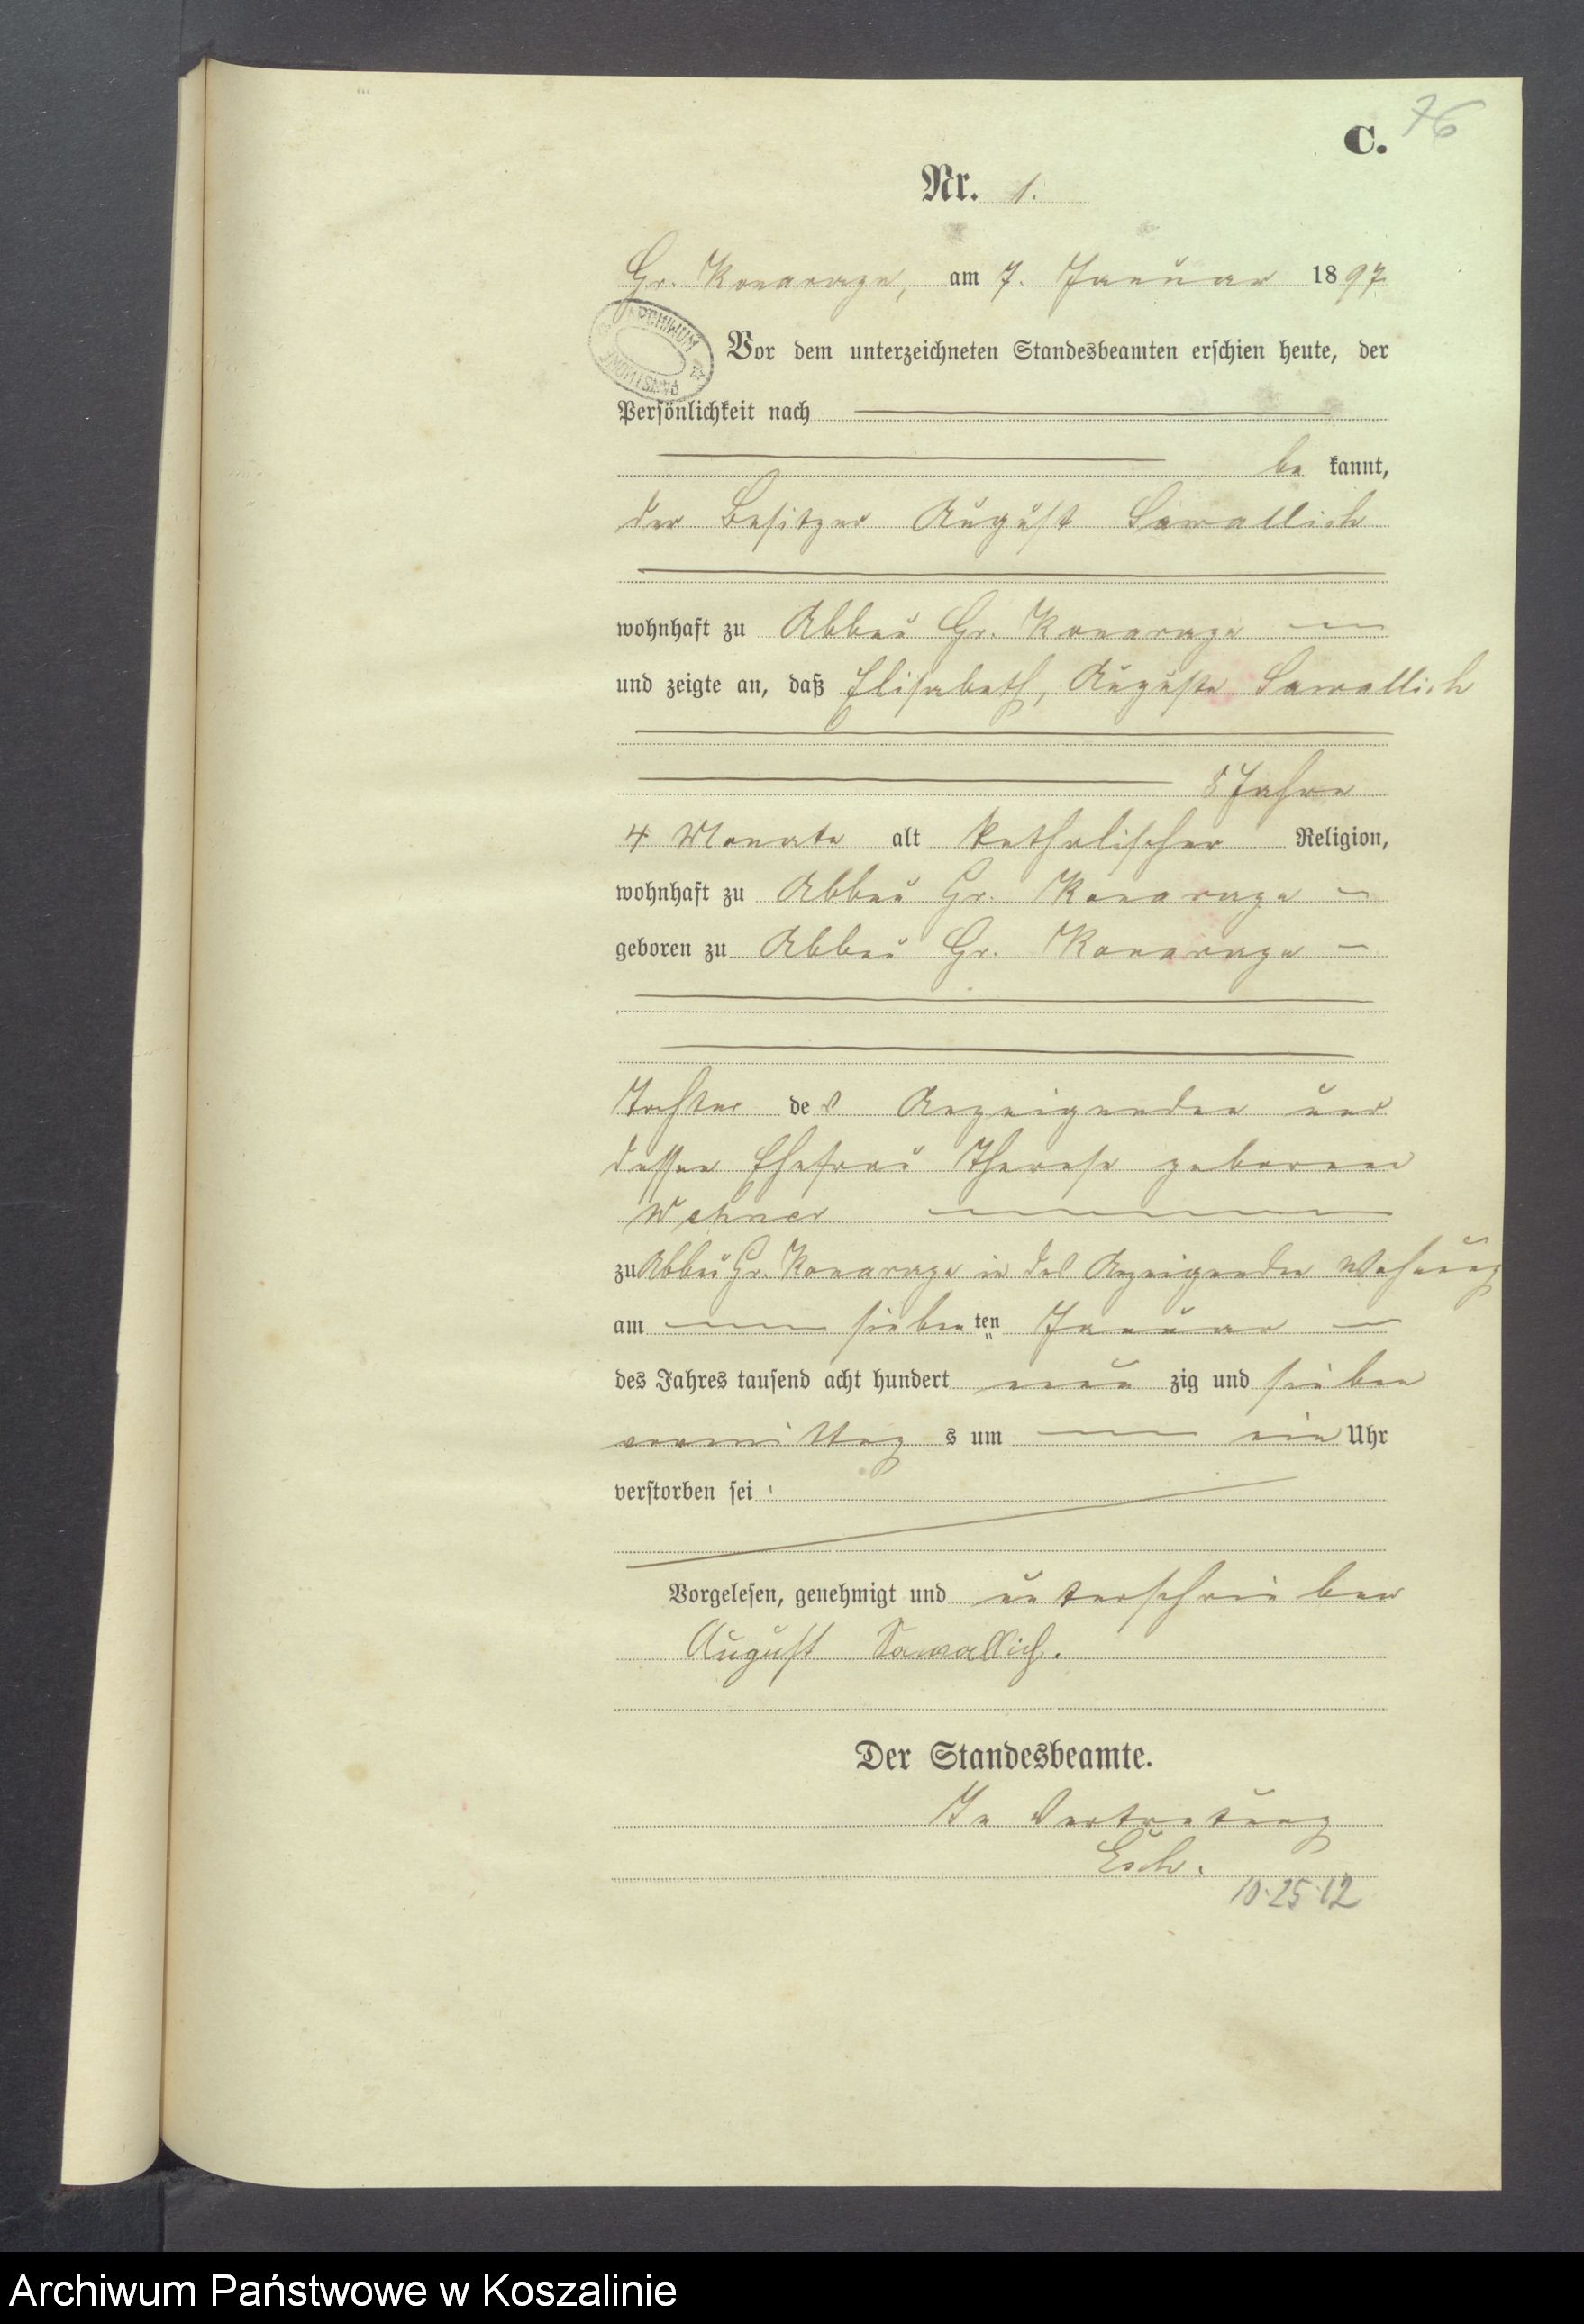 C. 76
Nr. 1.
Gr. Konarczyn, am 7. Januar 1897
ARCHIWUM
Vor dem unterzeichneten Standesbeamten erschien heute, der
Persönlichkeit nach
be kannt,
der Besitzer August Sawallich
wohnhaft zu Abbau Gr. Konarczyn
und zeigte an, daß Elisabeth, Auguste Sawallich
8 Jahre
4 Monate alt katholischer Religion,
wohnhaft zu Abbau Gr.
geboren zu Abbau Gr.
Tochter des Anzeigenden und
dessen Ehefrau Therese geborene
Wehner
zu Abbau Gr. in des Anzeigenden Wohnung
am siebenten Januar
des Jahres tausend acht hundert neun zig und sieben
vormittag s um ein Uhr
verstorben sei
Vorgelesen, genehmigt und unterschrieben
August Sawallich.
Der Standesbeamte.
In Vertretung
Esch.
10.25.12
Archiwum Państwowe w Koszalinie